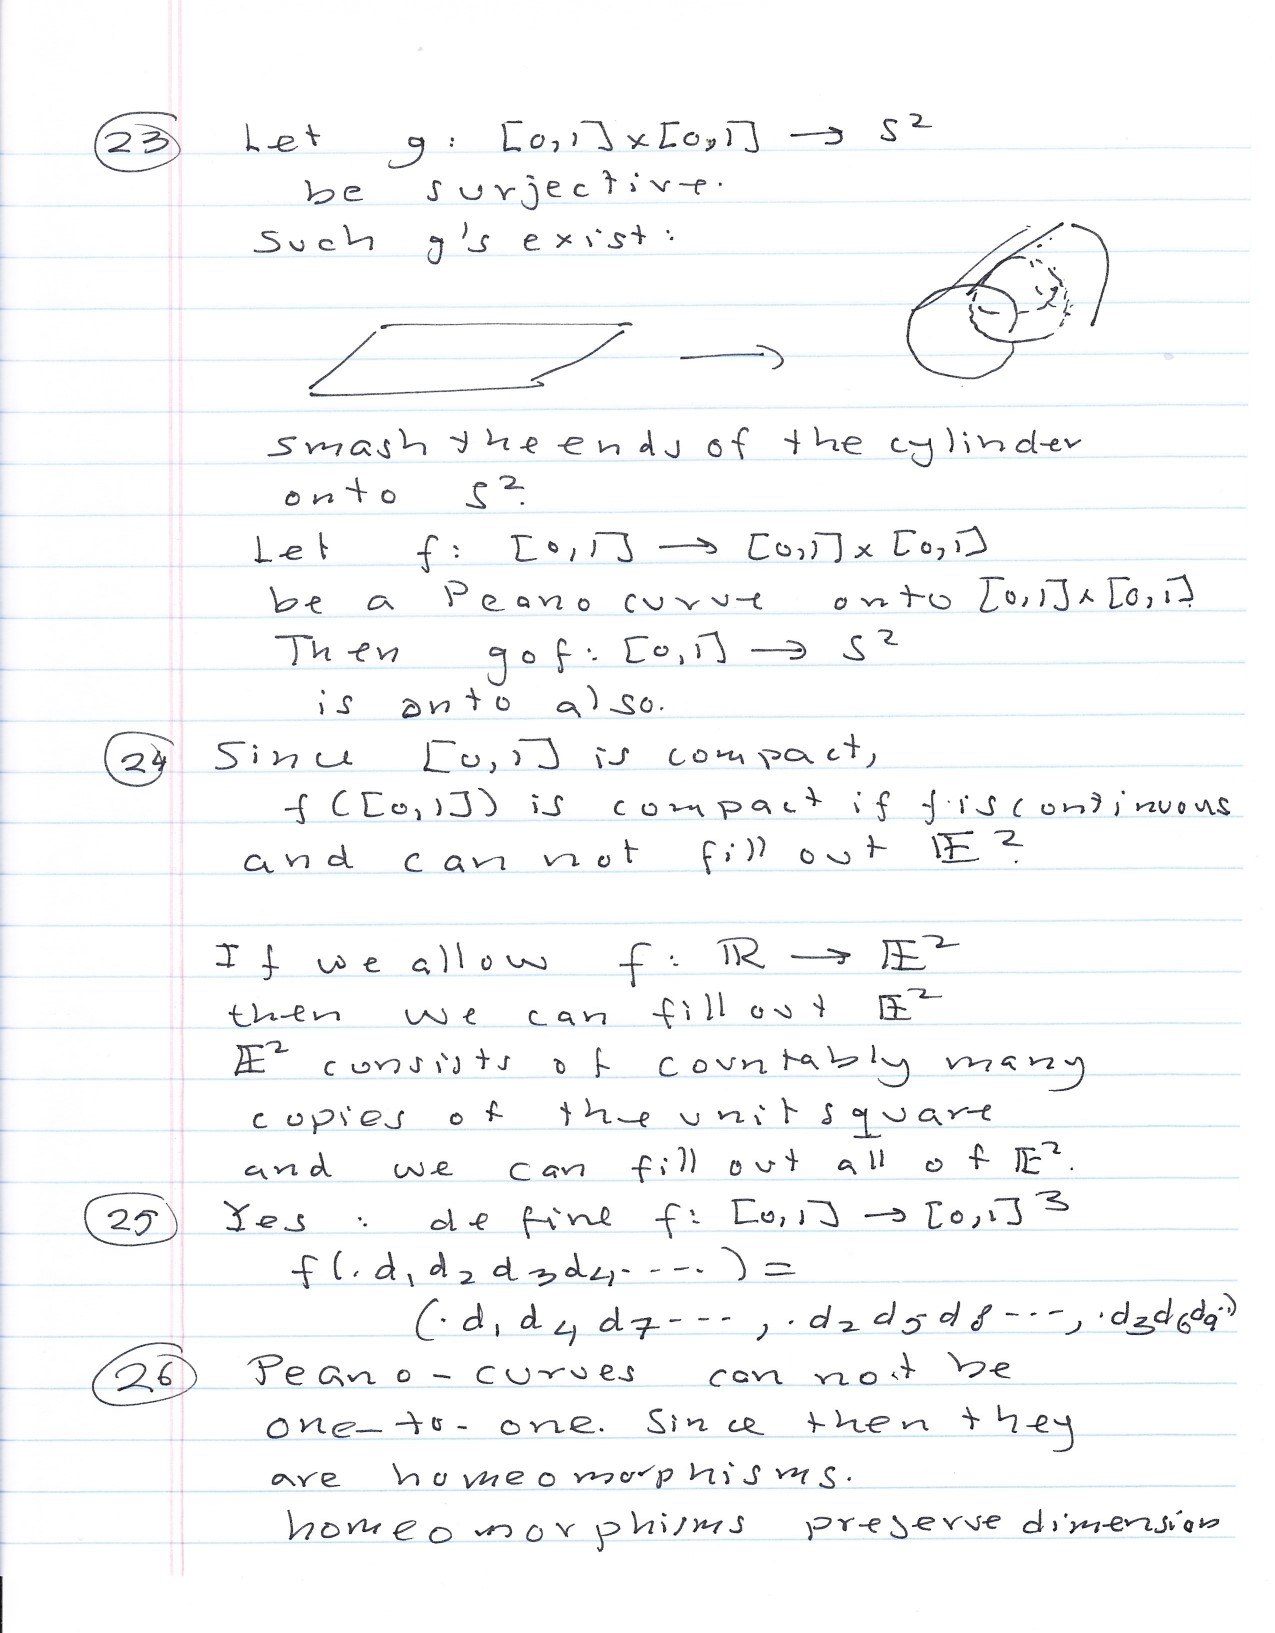 23 Let g: [0,1]×[0,1] → S²
be surjective.
Such g's exist:
→
smash the ends of the cylinder
onto S².
Let f: [0,1] → [0,1]×[0,1]
be a Peano curve onto [0,1]×[0,1].
Then g∘f: [0,1] → S²
is onto also.
24 Since [0,1] is compact,
f([0,1]) is compact if f is continuous
and can not fill out 𝔼².
If we allow f: ℝ → 𝔼²
then we can fill out 𝔼²
𝔼² consists of countably many
copies of the unit square
and we can fill out all of 𝔼².
25 Yes: define f: [0,1] → [0,1]³
f(.d₁d₂d₃d₄----.) =
(.d₁d₄d₇---, .d₂d₅d₈---, .d₃d₆d₉..)
26 Peano-curves can not be
one-to-one. Since then they
are homeomorphisms.
homeomorphisms preserve dimension